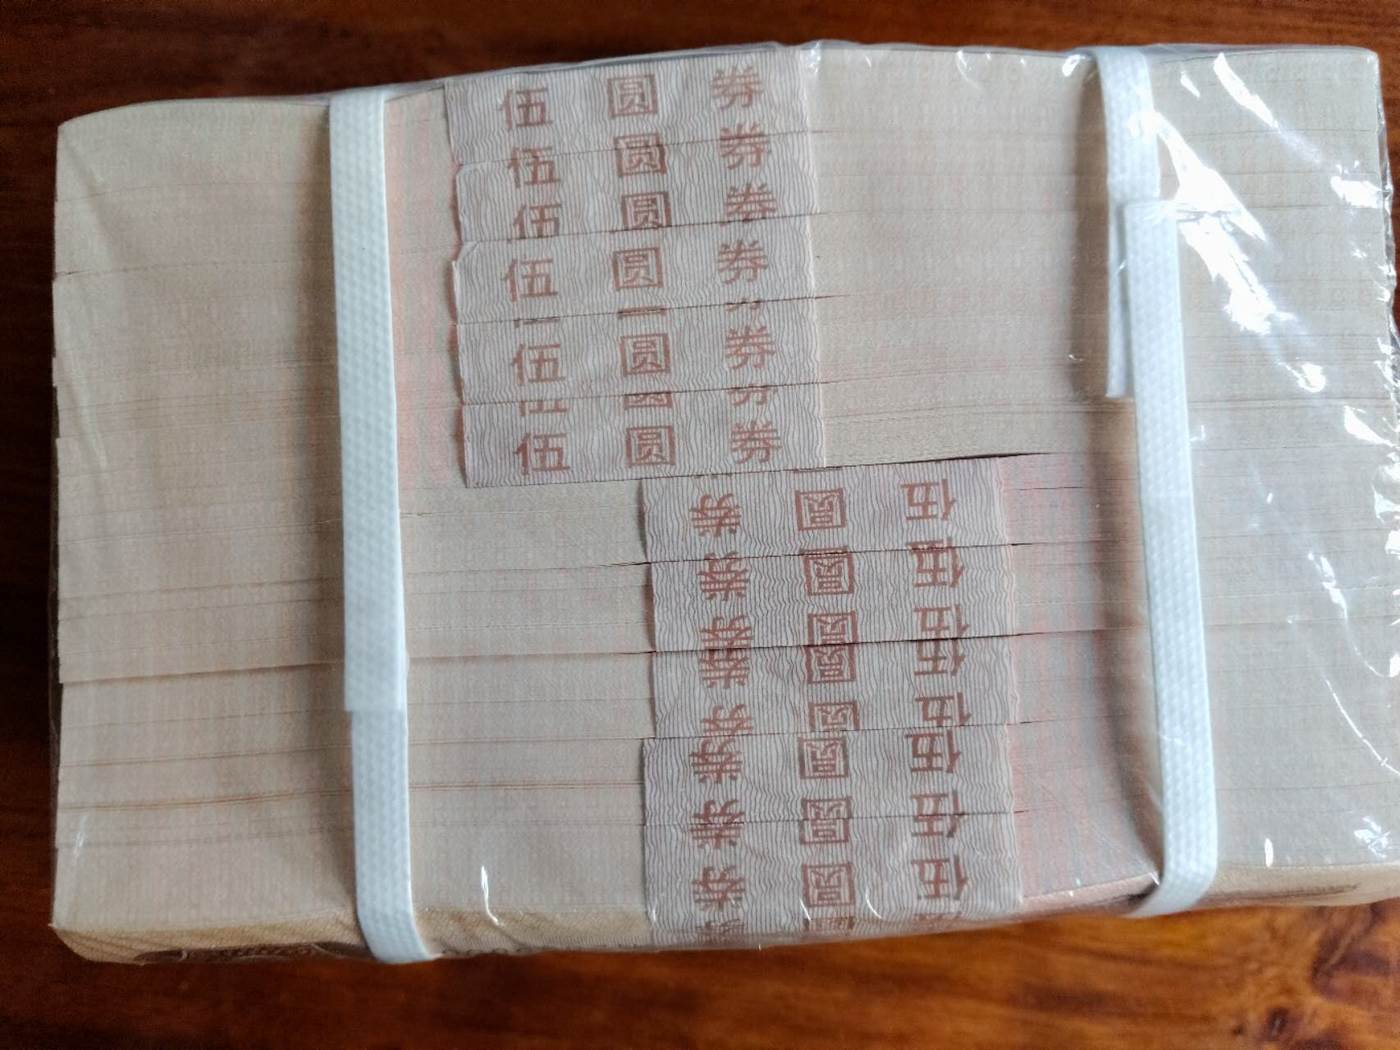 伍圆券
伍圆券
伍圆券
伍圆券
伍圆券
伍圆券
伍圆券
伍圆券
伍圆券
伍圆券
伍圆券
伍圆券
伍圆券
伍圆券